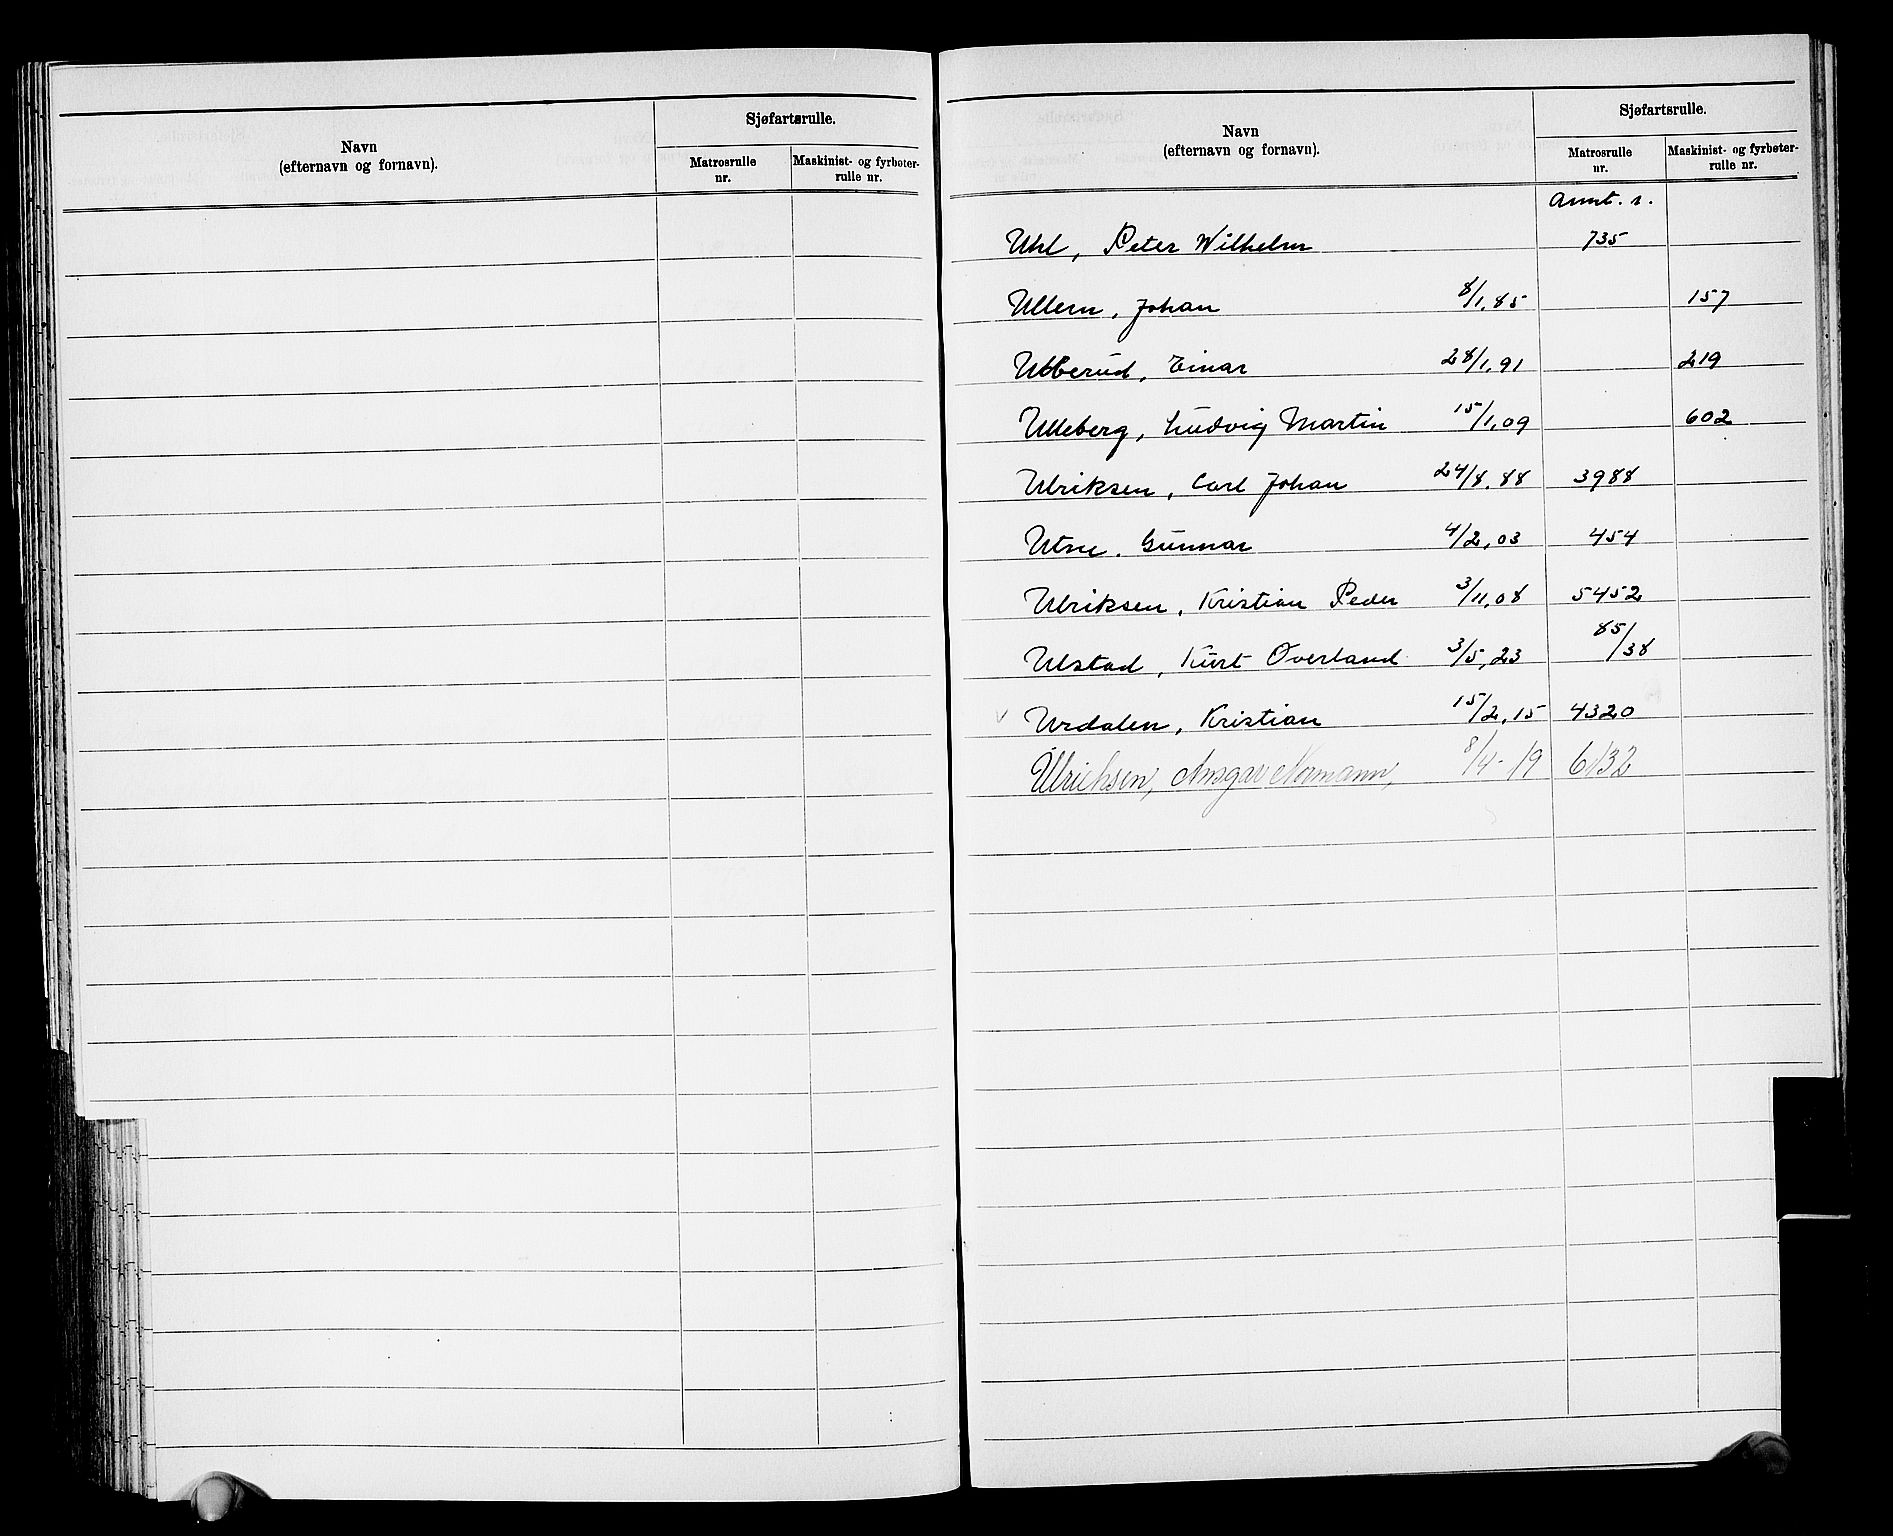 Navn
(efternavn og fornavn).
Sjøfartsrulle.
Matrosrulle
nr.
Maskinist- og fyrbøter-
rulle nr.
Navn
(efternavn og fornavn).
Sjøfartsrulle.
Matrosrulle
nr.
Maskinist- og fyrbøter-
rulle nr.
Annt. 1.
Uhl, Peter Wilhelm 735
Ullern, Johan 8/1.85 157
Ulberud, Einar 28/1.91 219
Ulleberg, Ludvig Martin 15/1.09 602
Ulriksen, Carl Johan 24/8.88 3988
Utne. Gunnar 4/2.03 454
Ulriksen, Kristian Peder 3/11.08 5452
Ulstad, Kurt Overland 3/5.23 85/38
v Urdalen, Kristian 15/2.15 4320
Ulrichsen, Ansgar Normann, 8/4-19 6132